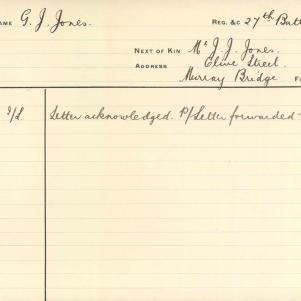 AME G. J. Jones. REG. &C 27th Batt
NEXT OF KIN Mr J. J. Jones.
ADDRESS Clive Street.
Murray Bridge F
Letter acknowledged. P/Letter forwarded-